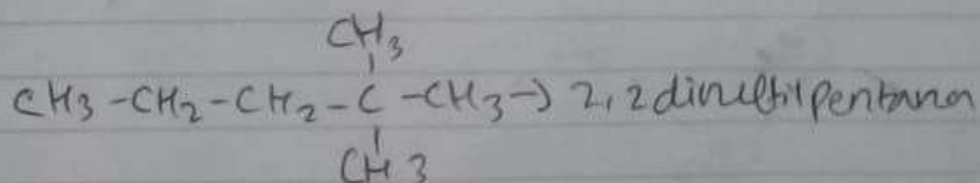 CH3
CH3-CH2-CH2-C-CH3→ 2,2 dimetilpentana
CH3